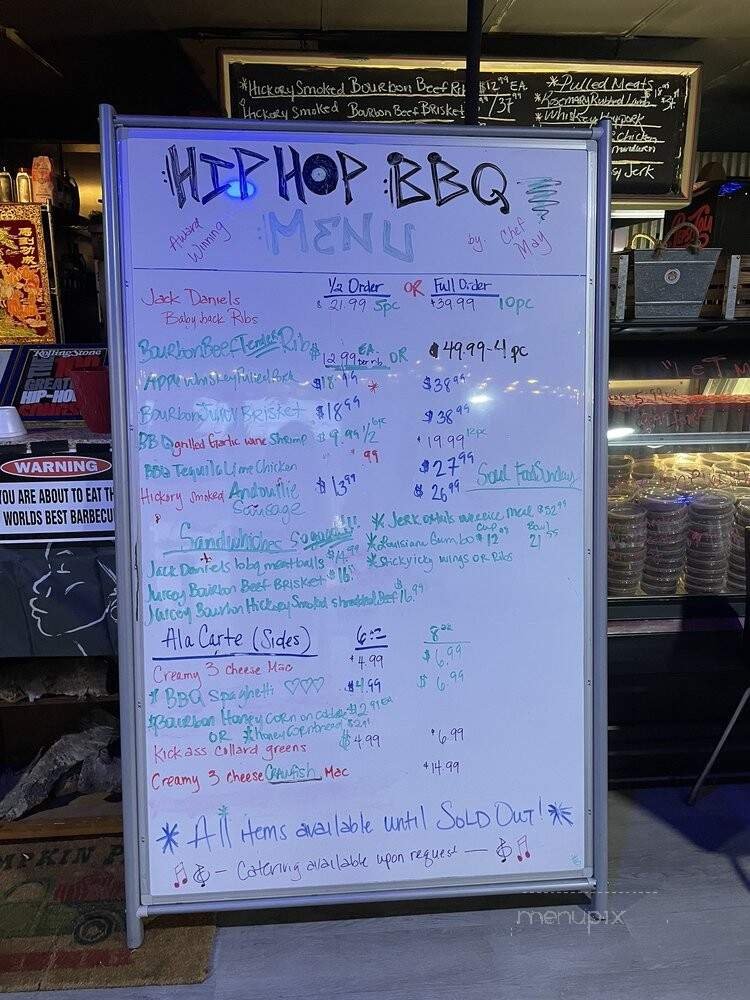 *Hickory Smoked Bourbon Beef Rib $12.99 EA.
Hickory Smoked Bourbon Beef Brisket /37.99
*Pulled Meats
*Rosemary Rubbed Lamb
*Whiskey Pork
Chicken
Jerk
HIP HOP BBQ
MENU
Award Winning
by: Chef May
1/2 Order OR Full Order
Jack Daniels Baby back Ribs $21.99 5pc $39.99 10pc
Bourbon Beef Tender Rib $12.99 EA. OR $49.99-4pc
Apple Whiskey Pulled Pork $18.99 * $38.99
Bourbon Juicy Brisket $18.99 $38.99
BBQ grilled Garlic wine Shrimp $9.99 1/2 6pc $19.99 12pc
BBQ Tequila Lime Chicken .99 $27.99
Hickory Smoked Andouille Sausage $13.99 $26.99
Soul Food Sundays
Sandwhiches
* Jerk oxtails w/rice meal $32.99
* Louisiana Gumbo Cup $12 Bowl 21
* Sticky icky wings or Ribs
Jack Daniels bbq meatballs $14.99
Juicey Bourbon Beef Brisket $16.
Juicey Bourbon Hickory Smoked shredded Beef $16.99
Ala Carte (Sides) 6oz 8oz
Creamy 3 cheese Mac $4.99 $6.99
* BBQ Spaghetti ♡♡♡ $4.99 $6.99
*Bourbon Honey Corn on Cobb $2.99 EA
OR *Honey Cornbread
Kickass collard greens $4.99 $6.99
Creamy 3 cheese Crawfish Mac $14.99
* All items available until SOLD OUT! *
- Catering available upon request -
Rolling Stone
GREAT
HIP-HO
WARNING
YOU ARE ABOUT TO EAT TH
WORLDS BEST BARBECU
MPKIN P
menupix